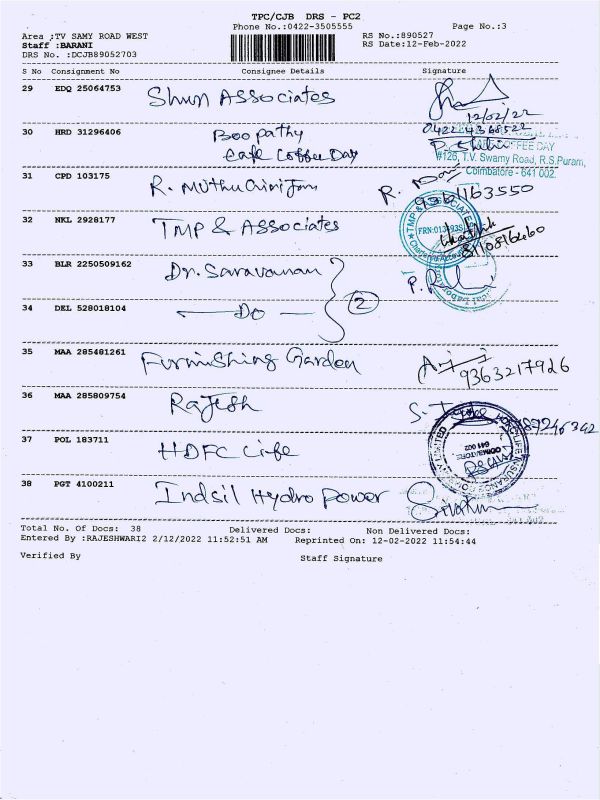 TPC/CJB DRS - PC2
Phone No.:0422-3505555 Page No.:3
Area ;TV SAMY ROAD WEST RS No.:890527
Staff :BARANI RS Date:12-Feb-2022
DRS No. :DCJB89052703
S No Consignment No Consignee Details Signature
29 EDQ 25064753 Shun Associates
12/02/22
30 HRD 31296406 Boopathy
Cafe Coffee Day
COFFEE DAY
#126, T.V. Swamy Road, R.S.Puram,
Coimbatore - 641 002.
31 CPD 103175 R.
32 NKL 2928177 TMP & Associates
TMP & ASSOCIATES
Chartered
33 BLR 2250509162 Dr. Saravanan
2
34 DEL 528018104 Do
35 MAA 285481261 Furnishing Garden
9363217926
36 MAA 285809754 Rajesh
37 POL 183711 HDFC Life
COIMBATORE
641 002
38 PGT 4100211 Indsil Hydro Power
Total No. Of Docs: 38 Delivered Docs: Non Delivered Docs:
Entered By :RAJESHWARI2 2/12/2022 11:52:51 AM Reprinted On: 12-02-2022 11:54:44
Verified By Staff Signature